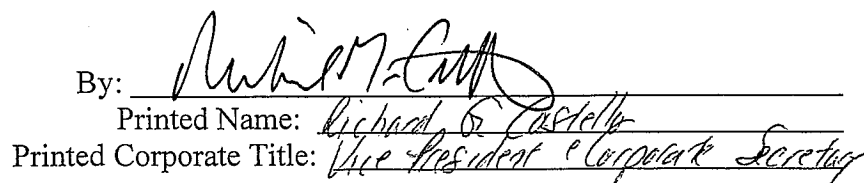 By:
Printed Name: Richard G. Costello
Printed Corporate Title: Vice President & Corporate Secretary